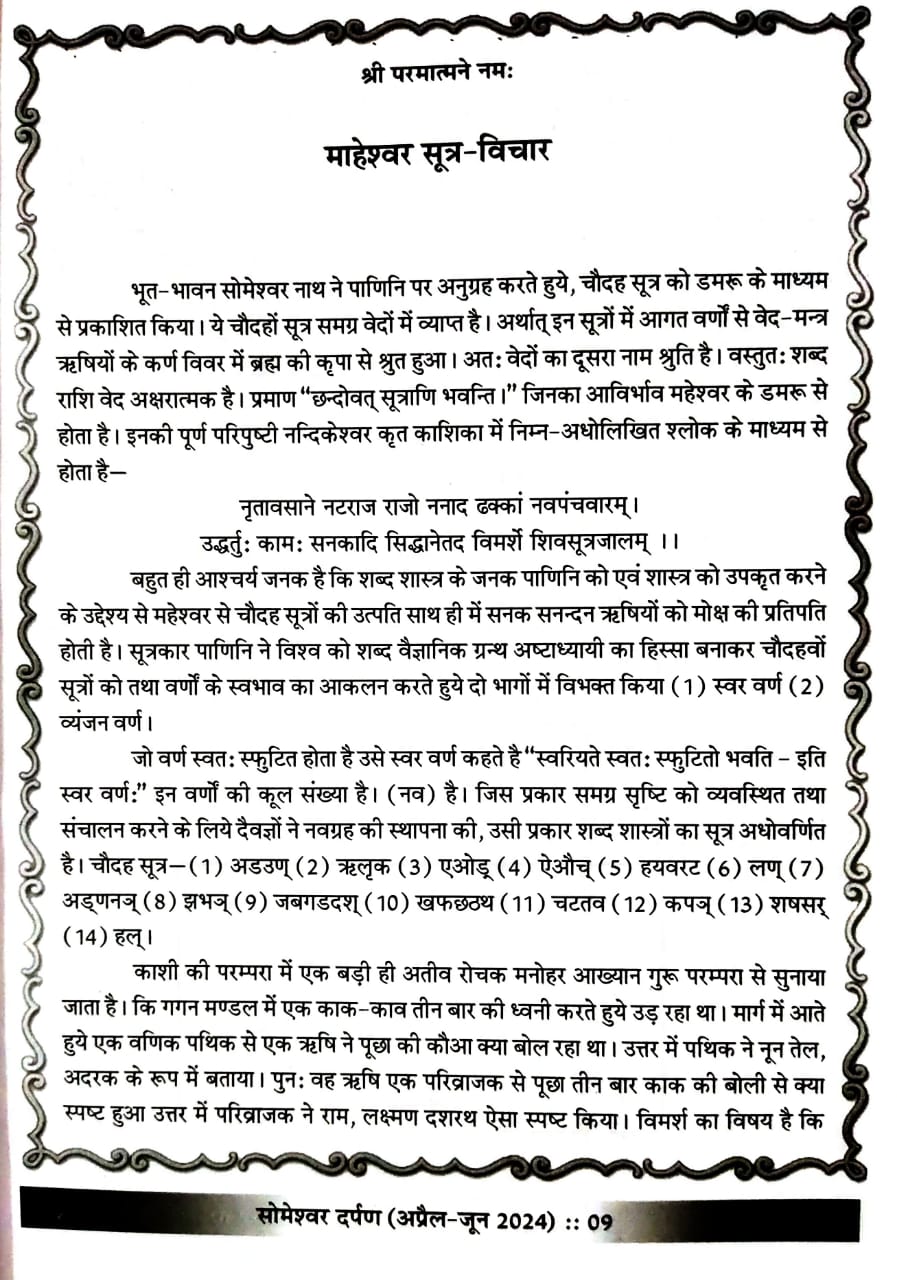 श्री परमात्मने नमः
माहेश्वर सूत्र-विचार
भूत-भावन सोमेश्वर नाथ ने पाणिनि पर अनुग्रह करते हुये, चौदह सूत्र को डमरू के माध्यम
से प्रकाशित किया। ये चौदहों सूत्र समग्र वेदों में व्याप्त है। अर्थात् इन सूत्रों में आगत वर्णों से वेद-मन्त्र
ऋषियों के कर्ण विवर में ब्रह्म की कृपा से श्रुत हुआ। अतः वेदों का दूसरा नाम श्रुति है। वस्तुतः शब्द
राशि वेद अक्षरात्मक है। प्रमाण “छन्दोवत् सूत्राणि भवन्ति।” जिनका आविर्भाव महेश्वर के डमरू से
होता है। इनकी पूर्ण परिपुष्टी नन्दिकेश्वर कृत काशिका में निम्न-अधोलिखित श्लोक के माध्यम से
होता है—
नृतावसाने नटराज राजो ननाद ढक्कां नवपंचवारम्।
उद्धर्तुः कामः सनकादि सिद्धानेतद विमर्शे शिवसूत्रजालम् ।।
बहुत ही आश्चर्य जनक है कि शब्द शास्त्र के जनक पाणिनि को एवं शास्त्र को उपकृत करने
के उद्देश्य से महेश्वर से चौदह सूत्रों की उत्पति साथ ही में सनक सनन्दन ऋषियों को मोक्ष की प्रतिपति
होती है। सूत्रकार पाणिनि ने विश्व को शब्द वैज्ञानिक ग्रन्थ अष्टाध्यायी का हिस्सा बनाकर चौदहवों
सूत्रों को तथा वर्णों के स्वभाव का आकलन करते हुये दो भागों में विभक्त किया (1) स्वर वर्ण (2)
व्यंजन वर्ण।
जो वर्ण स्वतः स्फुटित होता है उसे स्वर वर्ण कहते है “स्वरियते स्वतः स्फुटितो भवति – इति
स्वर वर्णः” इन वर्णों की कूल संख्या है। (नव) है। जिस प्रकार समग्र सृष्टि को व्यवस्थित तथा
संचालन करने के लिये दैवज्ञों ने नवग्रह की स्थापना की, उसी प्रकार शब्द शास्त्रों का सूत्र अधोवर्णित
है। चौदह सूत्र—(1) अडउण् (2) ऋलृक (3) एओड् (4) ऐऔच् (5) हयवरट (6) लण् (7)
अड्णनञ् (8) झभञ् (9) जबगडदश् (10) खफछठथ (11) चटतव (12) कपञ् (13) शषसर्
(14) हल्।
काशी की परम्परा में एक बड़ी ही अतीव रोचक मनोहर आख्यान गुरू परम्परा से सुनाया
जाता है। कि गगन मण्डल में एक काक-काव तीन बार की ध्वनी करते हुये उड़ रहा था। मार्ग में आते
हुये एक वणिक पथिक से एक ऋषि ने पूछा की कौआ क्या बोल रहा था। उत्तर में पथिक ने नून तेल,
अदरक के रूप में बताया। पुनः वह ऋषि एक परिव्राजक से पूछा तीन बार काक की बोली से क्या
स्पष्ट हुआ उत्तर में परिव्राजक ने राम, लक्ष्मण दशरथ ऐसा स्पष्ट किया। विमर्श का विषय है कि
सोमेश्वर दर्पण (अप्रैल-जून 2024) :: 09